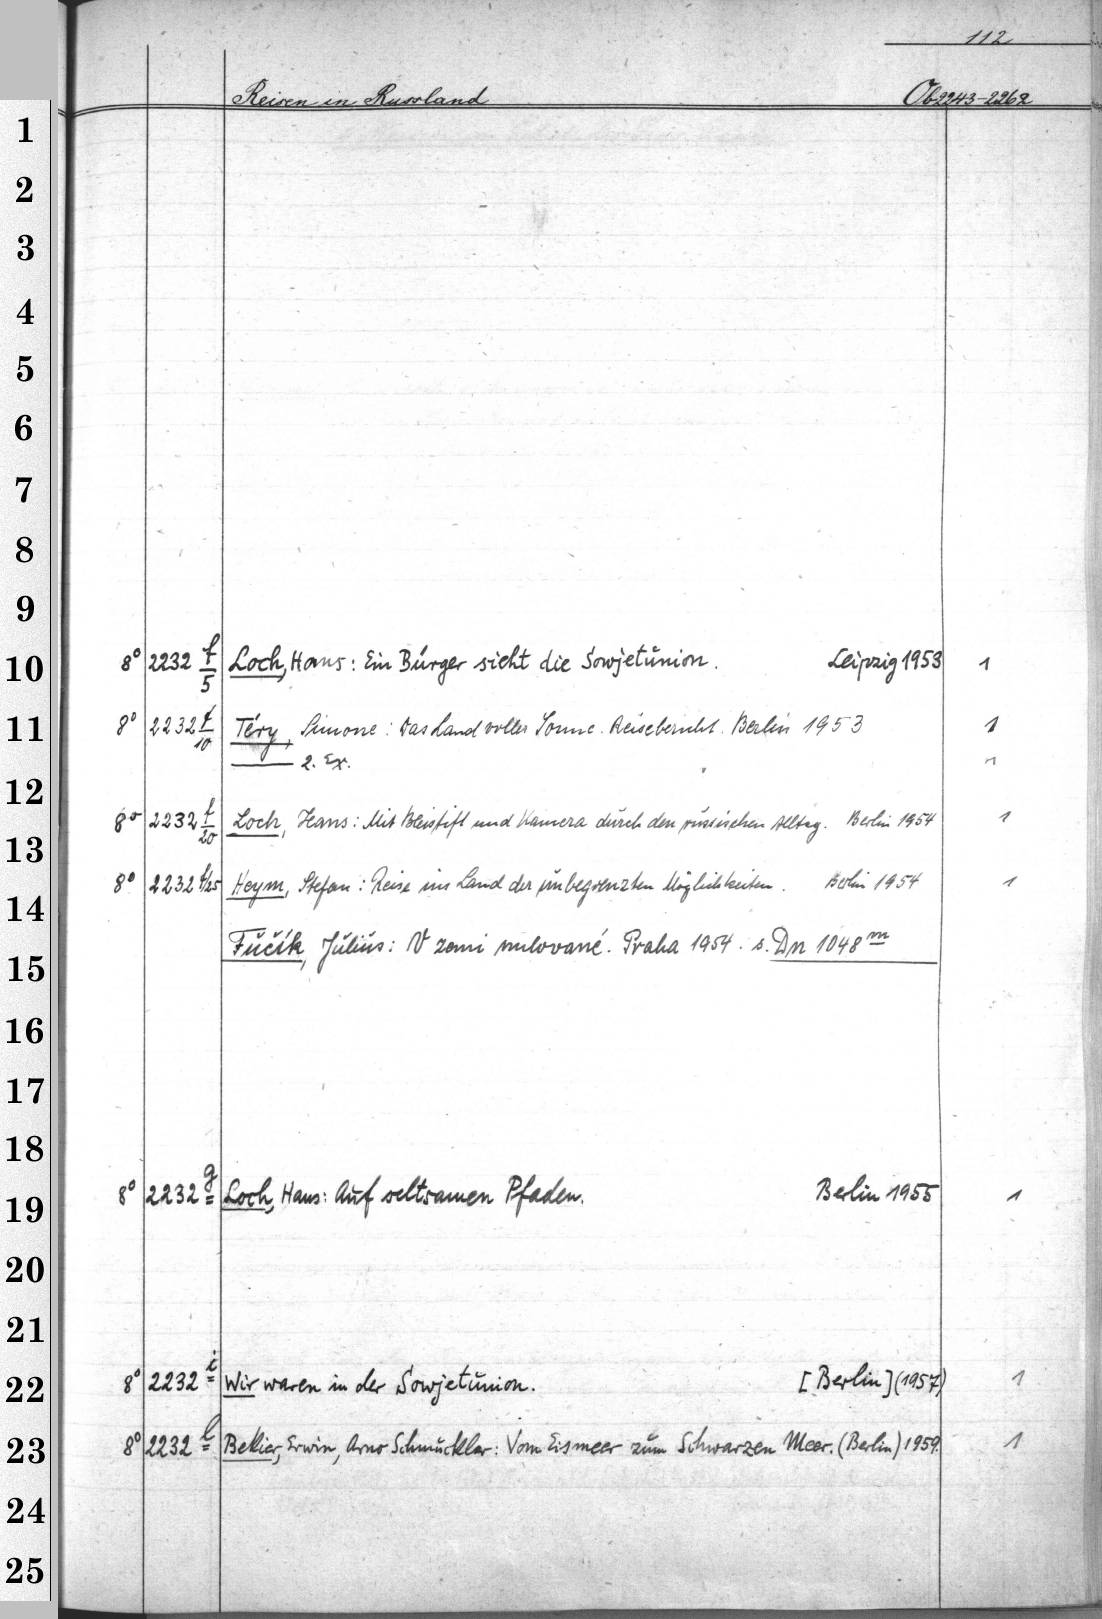 112
Reisen in Russland Ob2243-2262
1
2
3
4
5
6
7
8
9
10 8° 2232 f/5 Loch, Hans: Ein Bürger sieht die Sowjetunion. Leipzig 1953 1
11 8° 2232 f/10 Téry, Simone: Das Land voller Sonne. Reisebericht. Berlin 1953 1
2. Ex. 1
12 8° 2232 f/20 Loch, Hans: Mit Bleistift und Kamera durch den russischen Alltag. Berlin 1954 1
13 8° 2232 f/25 Heym, Stefan: Reise ins Land der unbegrenzten Möglichkeiten. Berlin 1954 1
14 Fučík, Julius: V zemi milované. Praha 1954. s. Dn 1048 m
15
16
17
18
19 8° 2232 g Loch, Hans: Auf seltsamen Pfaden. Berlin 1955 1
20
21
22 8° 2232 i Wir waren in der Sowjetunion. [Berlin] (1957) 1
23 8° 2232 l Bekier, Erwin, Arno Schmuckler: Vom Eismeer zum Schwarzen Meer. (Berlin) 1959. 1
24
25